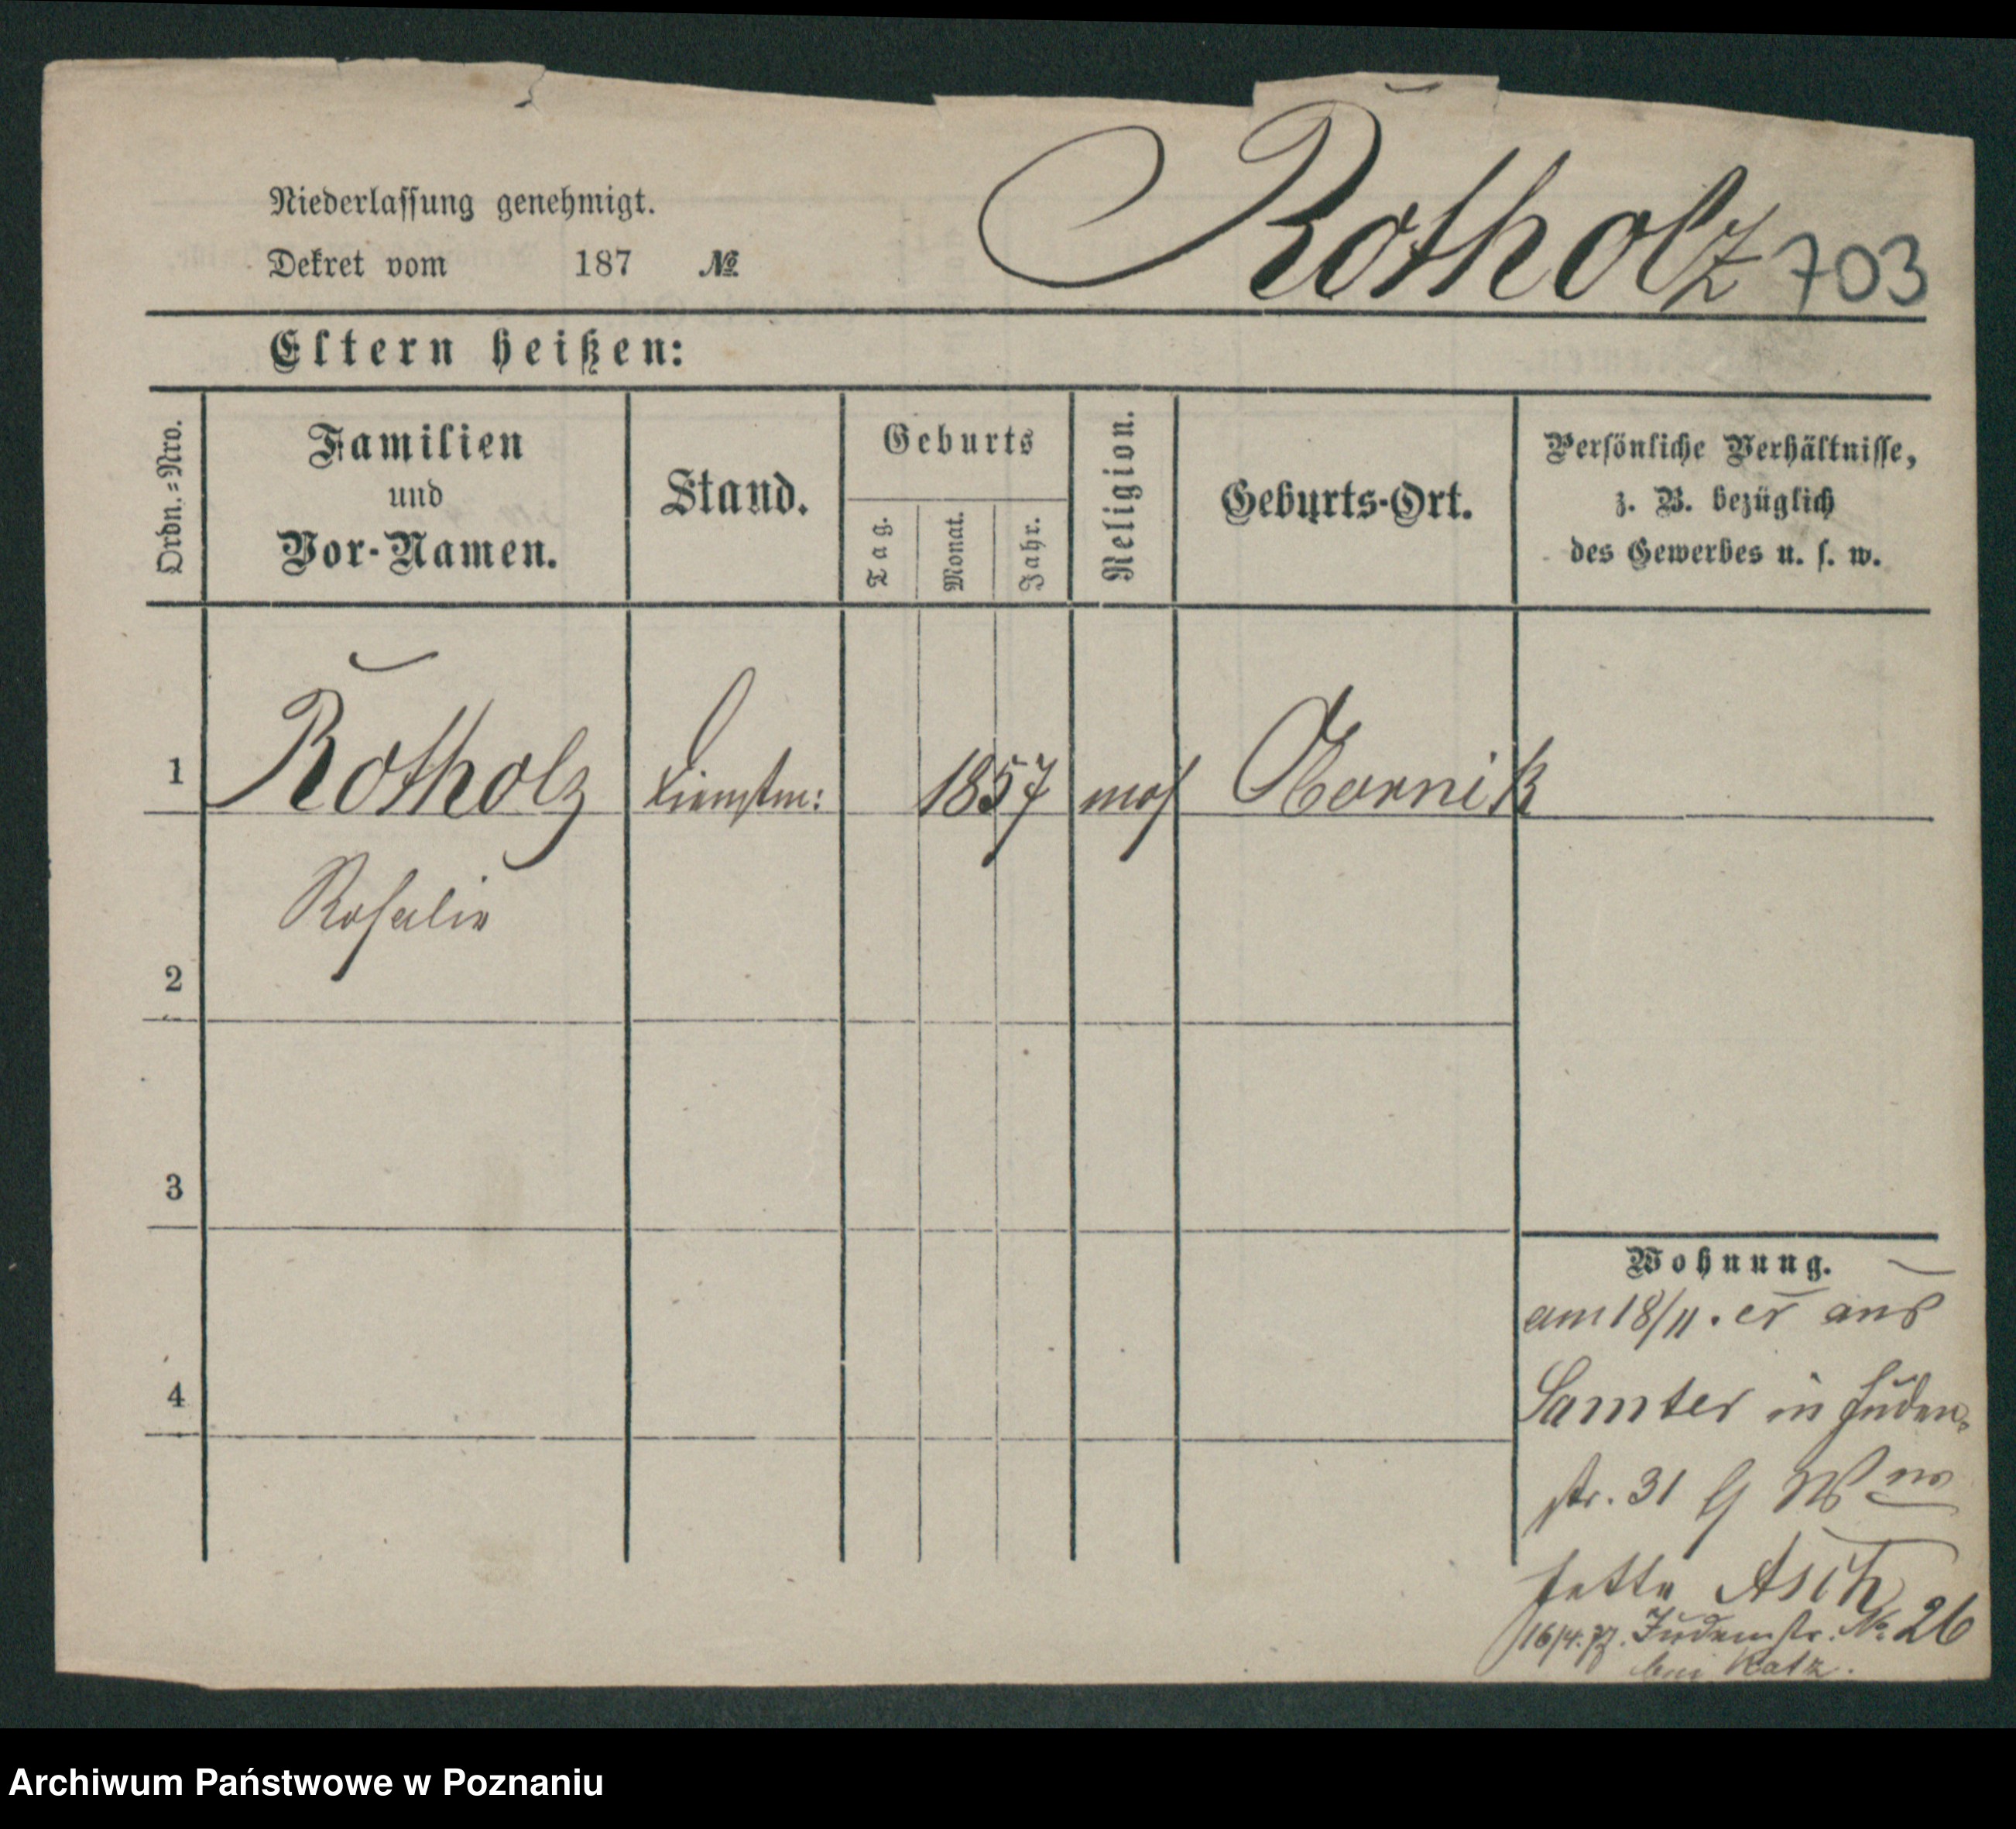 Niederlassung genehmigt.
Dekret vom 187 №
Rotholz 703
Eltern heißen:
Ordn.=Nro.
Familien
und
Vor-Namen.
Stand.
Geburts
Tag.
Monat.
Jahr.
Religion.
Geburts-Ort.
Persönliche Verhältnisse,
z. B. bezüglich
des Gewerbes u. s. w.
1 Rotholz Dienstm: 1857 mos Obornik
Rosalie
2
3
4
Wohnung.
am 18/11. cr aus
Samter in Juden-
str. 31
Jette Asch
16/4. 77. Judenstr. No 26
bei Katz.
Archiwum Państwowe w Poznaniu